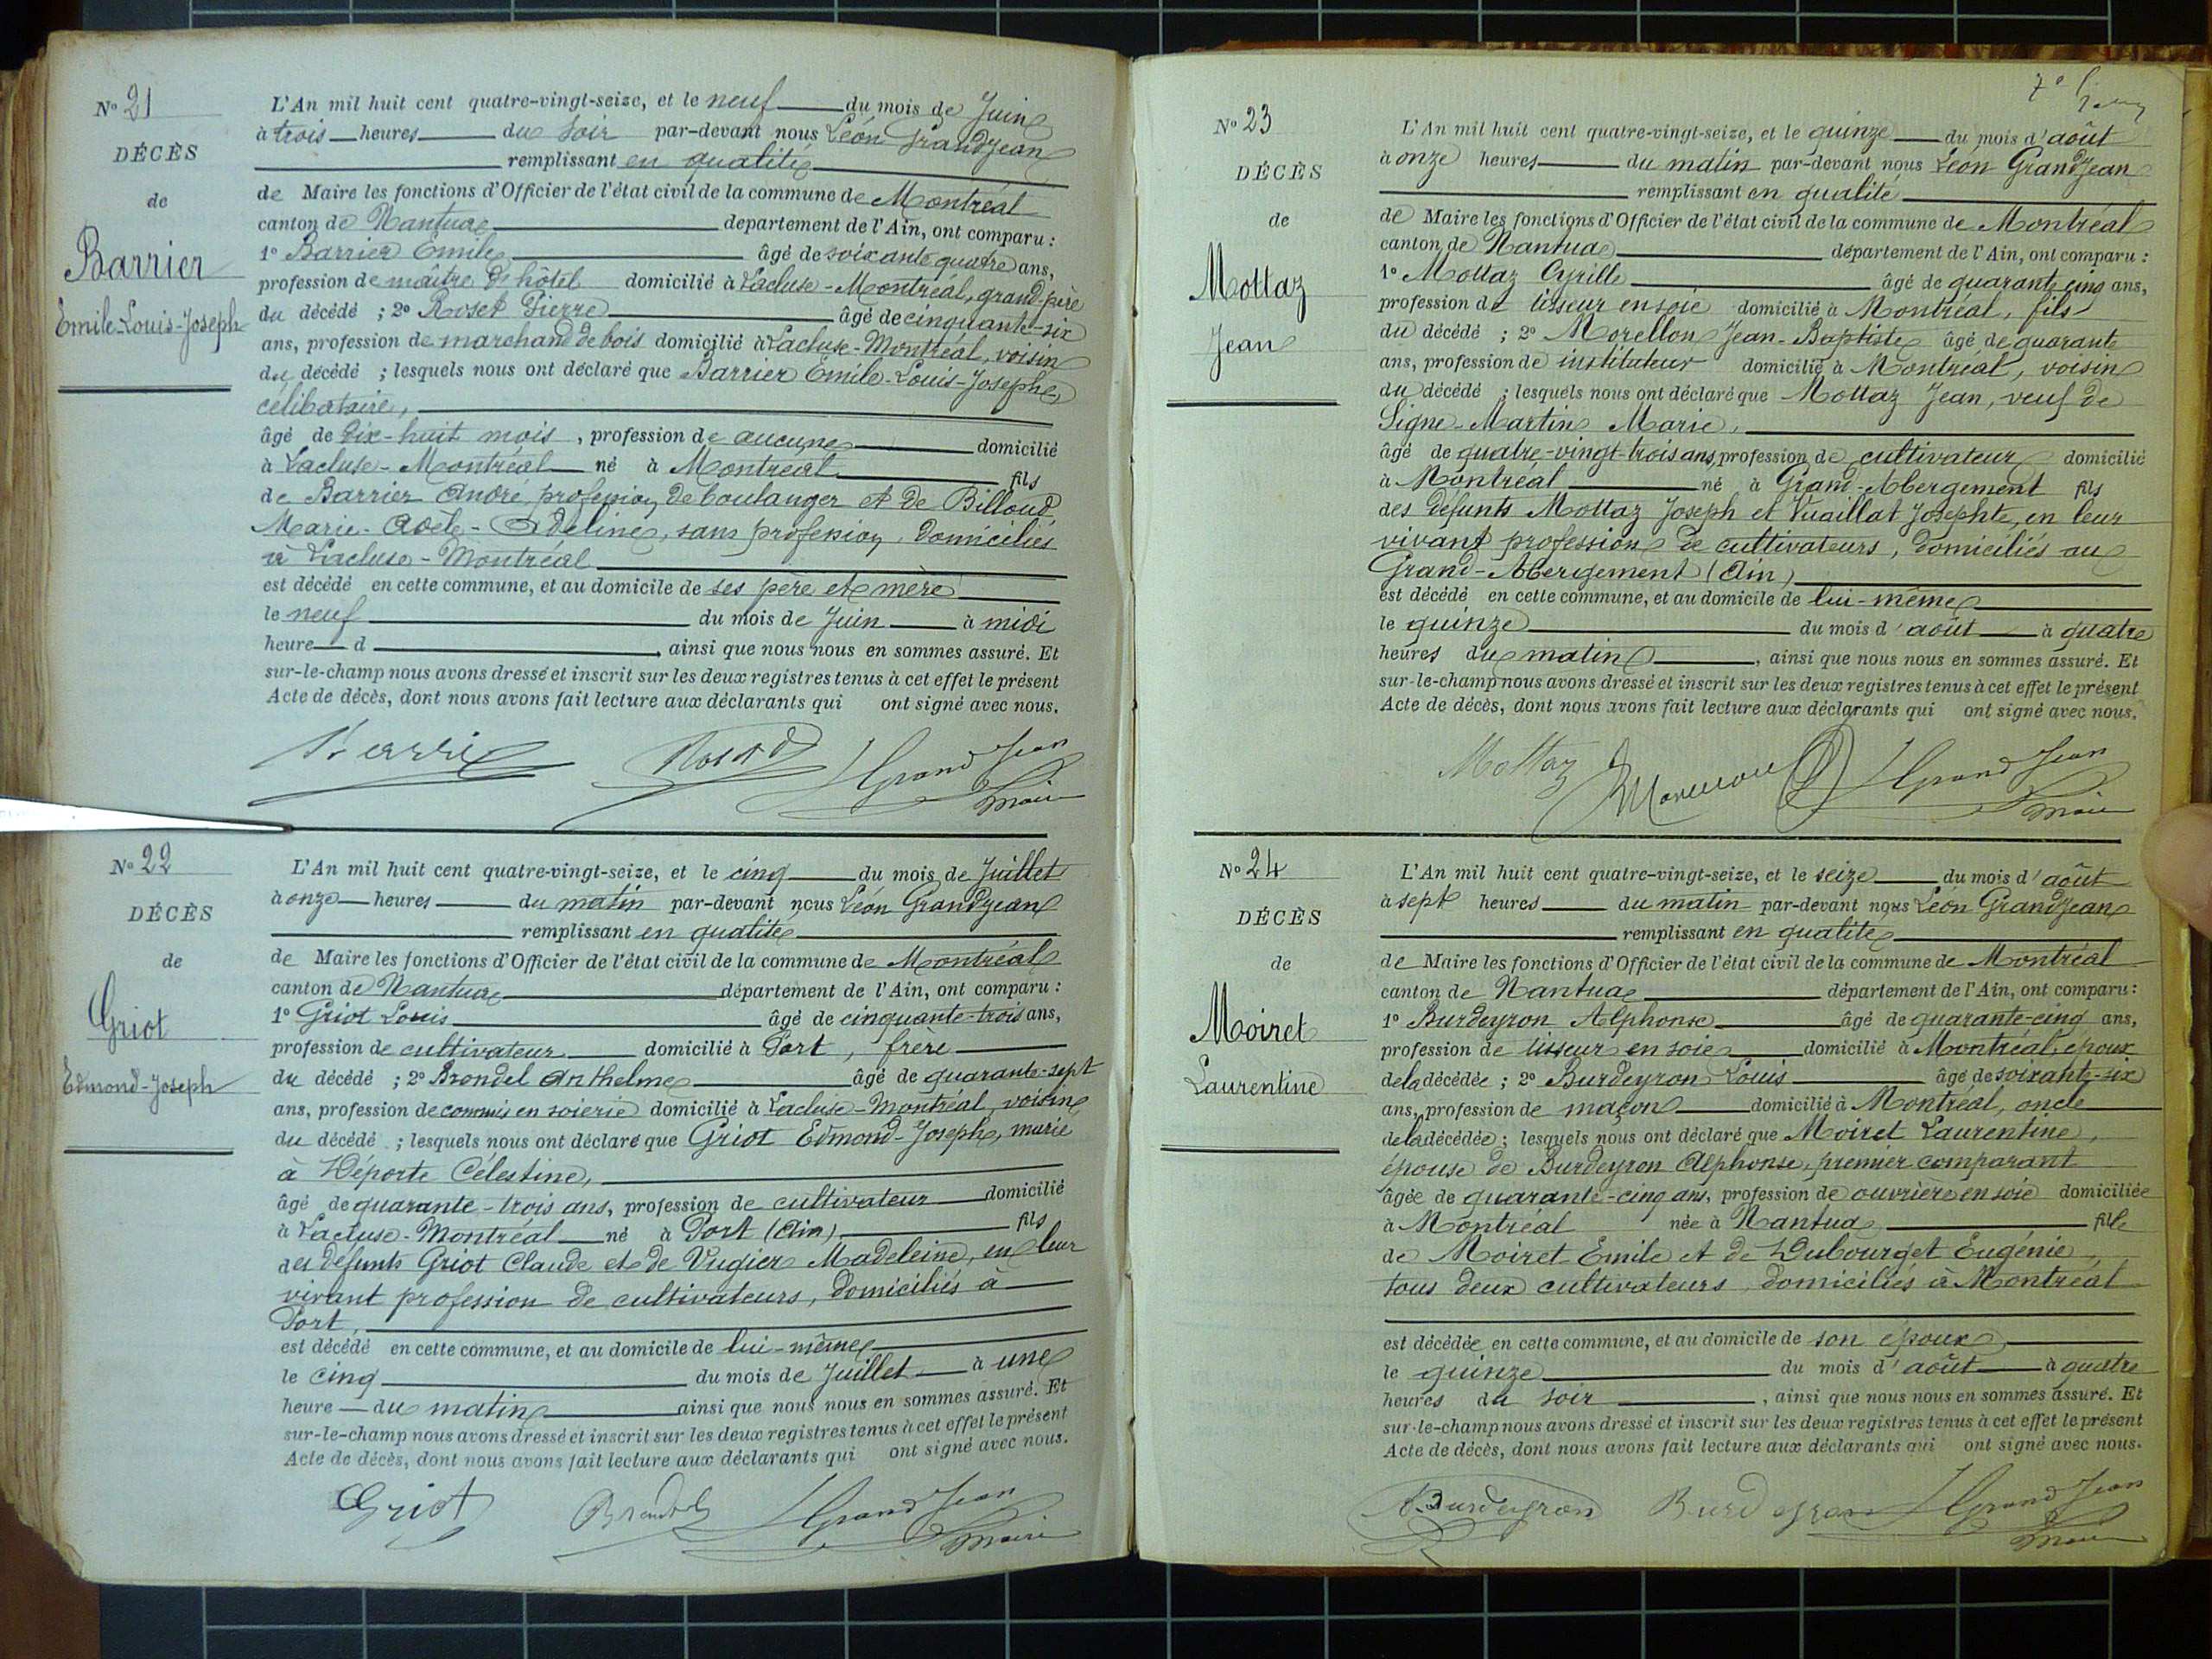 N° 21
DÉCÈS
de
Barrier
Emile-Louis-Joseph
L'An mil huit cent quatre-vingt-seize, et le neuf du mois de Juin
à trois heures du soir par-devant nous Léon Grandjean
remplissant en qualité
de Maire les fonctions d'Officier de l'état civil de la commune de Montréal
canton de Nantua département de l'Ain, ont comparu :
1° Barrier Emile âgé de soixante quatre ans,
profession de maître d'hôtel domicilié à Lacluse-Montréal, grand-père
du décédé ; 2° Roset Pierre âgé de cinquante-six
ans, profession de marchand de bois domicilié à Lacluse-Montréal, voisin
du décédé ; lesquels nous ont déclaré que Barrier Emile-Louis-Joseph,
célibataire,
âgé de dix-huit mois, profession de aucune domicilié
à Lacluse-Montréal né à Montréal fils
de Barrier André, profession de boulanger et de Billoud
Marie-Adèle-Adeline, sans profession, domiciliés
à Lacluse-Montréal
est décédé en cette commune, et au domicile de ses père et mère
le neuf du mois de Juin à midi
heure d , ainsi que nous nous en sommes assuré. Et
sur-le-champ nous avons dressé et inscrit sur les deux registres tenus à cet effet le présent
Acte de décès, dont nous avons fait lecture aux déclarants qui ont signé avec nous.
LGrandJean
maire
N° 22
DÉCÈS
de
Griot
Edmond-Joseph
L'An mil huit cent quatre-vingt-seize, et le cinq du mois de Juillet
à onze heures du matin par-devant nous Léon Grandjean
remplissant en qualité
de Maire les fonctions d'Officier de l'état civil de la commune de Montréal
canton de Nantua département de l'Ain, ont comparu :
1° Griot Louis âgé de cinquante-trois ans,
profession de cultivateur domicilié à Port, frère
du décédé ; 2° Brondel Anthelme âgé de quarante-sept
ans, profession de commis en soierie domicilié à Lacluse-Montréal, voisin
du décédé ; lesquels nous ont déclaré que Griot Edmond-Joseph, marié
à Déporte Célestine,
âgé de quarante-trois ans, profession de cultivateur domicilié
à Lacluse-Montréal né à Port (Ain) fils
des défunts Griot Claude et de Vugier Madeleine, en leur
vivant profession de cultivateurs, domiciliés à
Port,
est décédé en cette commune, et au domicile de lui-même
le cinq du mois de Juillet à une
heure du matin ainsi que nous nous en sommes assuré. Et
sur-le-champ nous avons dressé et inscrit sur les deux registres tenus à cet effet le présent
Acte de décès, dont nous avons fait lecture aux déclarants qui ont signé avec nous.
Griot LGrandJean
maire
N° 23
DÉCÈS
de
Mottaz
Jean
L'An mil huit cent quatre-vingt-seize, et le quinze du mois d'août
à onze heures du matin par-devant nous Léon Grandjean
remplissant en qualité
de Maire les fonctions d'Officier de l'état civil de la commune de Montréal
canton de Nantua département de l'Ain, ont comparu :
1° Mottaz Cyrille âgé de quarante cinq ans,
profession de tisseur en soie domicilié à Montréal, fils
du décédé ; 2° Morellon Jean-Baptiste âgé de quarante
ans, profession de instituteur domicilié à Montréal, voisin
du décédé ; lesquels nous ont déclaré que Mottaz Jean, veuf de
Signe-Martin Marie,
âgé de quatre-vingt-trois ans, profession de cultivateur domicilié
à Montréal né à Grand-Abergement fils
des défunts Mottaz Joseph et Vuaillat Josephte, en leur
vivant profession de cultivateurs, domiciliés au
Grand-Abergement (Ain)
est décédé en cette commune, et au domicile de lui-même
le quinze du mois d'août à quatre
heures du matin, ainsi que nous nous en sommes assuré. Et
sur-le-champ nous avons dressé et inscrit sur les deux registres tenus à cet effet le présent
Acte de décès, dont nous avons fait lecture aux déclarants qui ont signé avec nous.
Mottaz LGrandJean
maire
N° 24
DÉCÈS
de
Moiret
Laurentine
L'An mil huit cent quatre-vingt-seize, et le seize du mois d'août
à sept heures du matin par-devant nous Léon Grandjean
remplissant en qualité
de Maire les fonctions d'Officier de l'état civil de la commune de Montréal
canton de Nantua département de l'Ain, ont comparu :
1° Burdeyron Alphonse âgé de quarante-cinq ans,
profession de tisseur en soie domicilié à Montréal, époux
de la décédée ; 2° Burdeyron Louis âgé de soixante-six
ans, profession de maçon domicilié à Montréal, oncle
de la décédée ; lesquels nous ont déclaré que Moiret Laurentine,
épouse de Burdeyron Alphonse, premier comparant
âgée de quarante-cinq ans, profession de ouvrière en soie domiciliée
à Montréal née à Nantua fille
de Moiret Emile et de Dubourget Eugénie,
tous deux cultivateurs, domiciliés à Montréal
est décédée en cette commune, et au domicile de son époux
le quinze du mois d'août à quatre
heures du soir, ainsi que nous nous en sommes assuré. Et
sur-le-champ nous avons dressé et inscrit sur les deux registres tenus à cet effet le présent
Acte de décès, dont nous avons fait lecture aux déclarants qui ont signé avec nous.
Burdeyron Burdeyron LGrandJean
maire